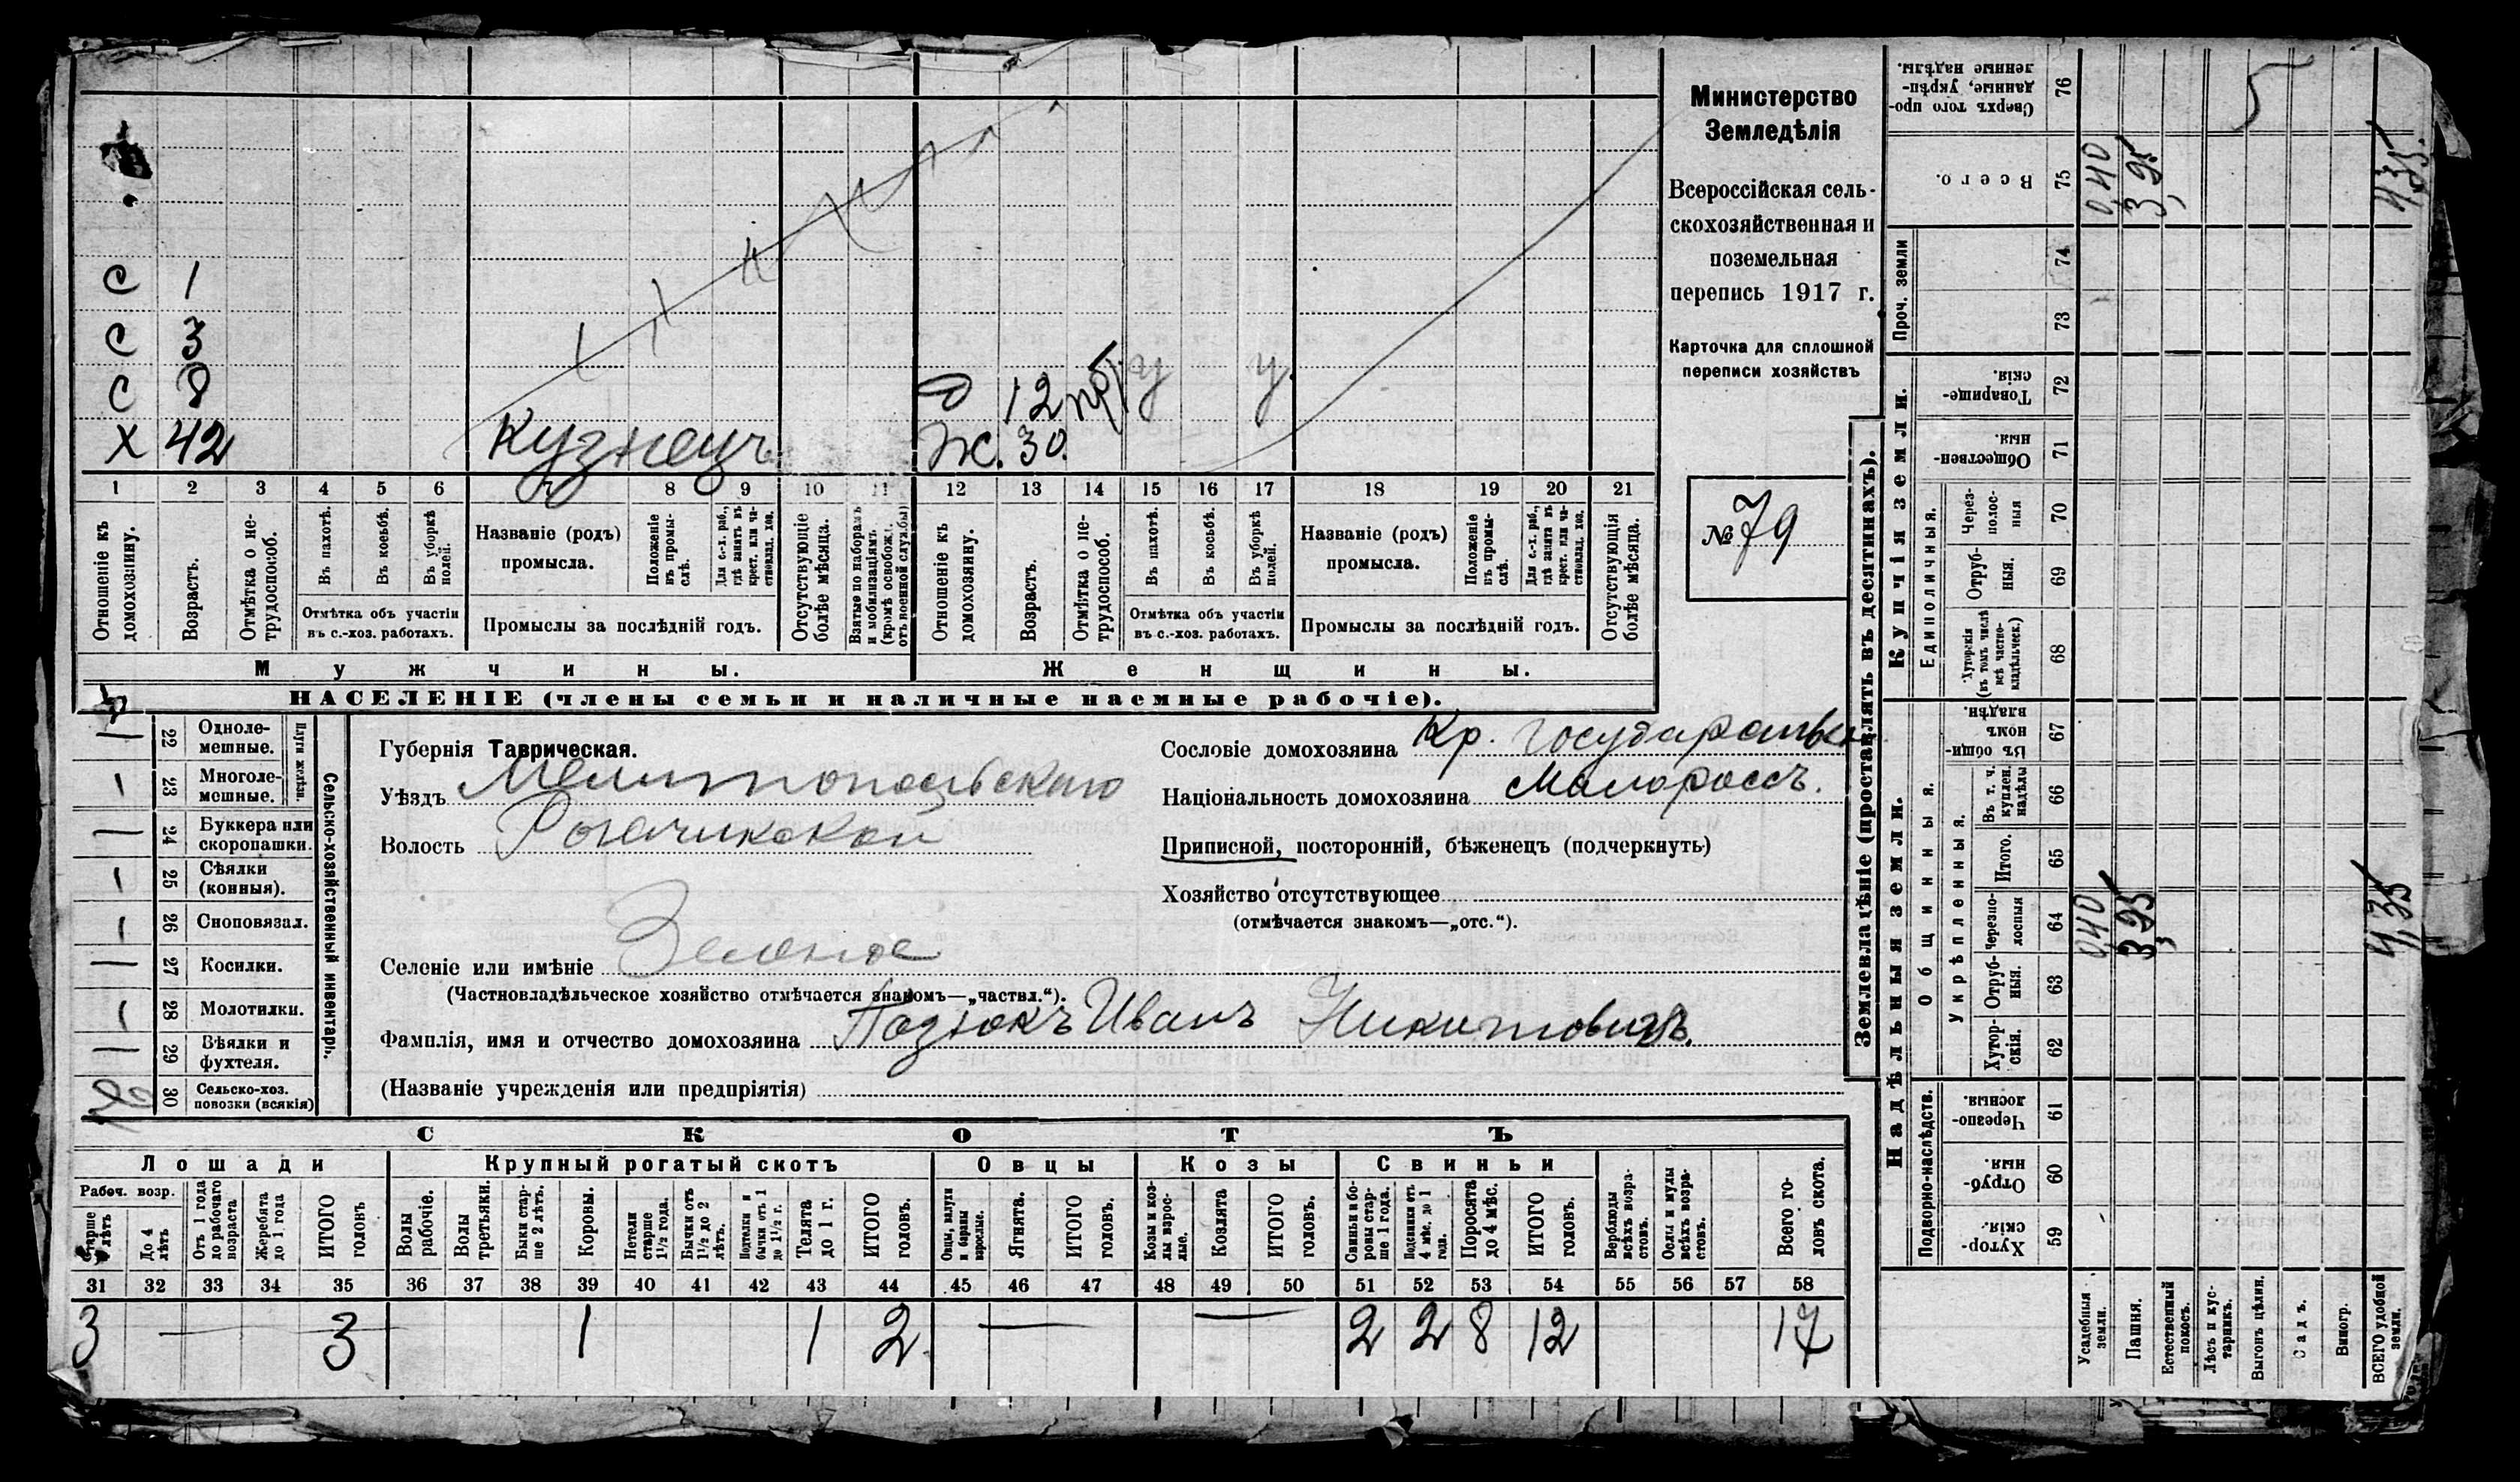 Министерство
Земледѣлія
Всероссійская сель-
скохозяйственная и
поземельная
перепись 1917 г.
Карточка для сплошной
переписи хозяйствъ
№ 79
С 1
С 3
С 8
Х 42 Кузнецъ
Д 12 у у
Ж. 30.
1 2 3 4 5 6 8 9 10 11 12 13 14 15 16 17 18 19 20 21
Отношеніе къ домохозяину.
Возрастъ.
Отмѣтка о не-трудоспособ.
Въ пахотѣ.
Въ косьбѣ.
Въ уборкѣ полей.
Отмѣтка объ участіи
въ с.-хоз. работахъ.
Названіе (родъ)
промысла.
Положеніе въ промы-слѣ.
Для с.-х. раб., гдѣ занятъ въ крест. или ча-стновлад. хоз.
Промыслы за послѣдній годъ.
Отсутствующіе болѣе мѣсяца.
Взятые по наборамъ и мобилизаціямъ (кромѣ освобож. отъ военной службы)
Отношеніе къ домохозяину.
Возрастъ.
Отмѣтка о не-трудоспособ.
Въ пахотѣ.
Въ косьбѣ.
Въ уборкѣ полей.
Отмѣтка объ участіи
въ с.-хоз. работахъ.
Названіе (родъ)
промысла.
Положеніе въ промы-слѣ.
Для с.-х. раб., гдѣ занята въ крест. или ча-стновлад. хоз.
Промыслы за послѣдній годъ.
Отсутствующія болѣе мѣсяца.
Мужчины.
Женщины.
НАСЕЛЕНІЕ (члены семьи и наличные наемные рабочіе).
Сельско-хозяйственный инвентарь.
Плуги желѣзн.
22 Однолемешные.
23 Многолемешные.
24 Буккера или скоропашки.
25 Сѣялки (конныя).
26 Сноповязал.
27 Косилки.
28 Молотилки.
29 Вѣялки и фухтеля.
30 Сельско-хоз. повозки (всякія)
Губернія Таврическая.
Уѣздъ Мелитопольскаго
Волость Рогачикской
Селеніе или имѣніе Зеленое
(Частновладѣльческое хозяйство отмѣчается знакомъ—„частвл.“).
Фамилія, имя и отчество домохозяина Позюкъ Иванъ Никитовичъ.
(Названіе учрежденія или предпріятія)
Сословіе домохозяина Кр. государствен
Національность домохозяина Малороссъ.
Приписной, посторонній, бѣженецъ (подчеркнуть)
Хозяйство отсутствующее
(отмѣчается знакомъ—„отс.“).
СКОТЪ
Лошади
Крупный рогатый скотъ
Овцы
Козы
Свиньи
Рабоч. возр.
Старше 4 лѣтъ
До 4 лѣтъ
Отъ 1 года до рабочаго возраста
Жеребята до 1 года
ИТОГО головъ
Волы рабочіе.
Волы третьяки.
Быки стар-ше 2 лѣтъ.
Коровы.
Нетели старше 1½ года.
Бычки отъ 1½ до 2 лѣтъ.
Подтелки и бычки отъ 1 до 1½ г.
Телята до 1 г.
ИТОГО головъ.
Овцы, валухи и бараны взрослые.
Ягнята.
ИТОГО головъ.
Козы и коз-лы взрос-лые.
Козлята
ИТОГО головъ.
Свиньи и бо-ровы стар-ше 1 года.
Подсвинки отъ 4 мѣс. до 1 года.
Поросята до 4 мѣс.
ИТОГО головъ.
Верблюды всѣхъ возра-стовъ.
Ослы и мулы всѣхъ возра-стовъ.
Всего го-ловъ скота.
31 32 33 34 35 36 37 38 39 40 41 42 43 44 45 46 47 48 49 50 51 52 53 54 55 56 57 58
3 — 3 1 1 2 — — 2 2 8 12 17
Землевладѣніе (проставлять въ десятинахъ).
Надѣльныя земли.
Купчія земли.
Проч. земли
Подворно-наслѣдств.
Общинныя.
Укрѣпленныя.
Единоличныя.
59 Хутор-скія.
60 Отруб-ныя.
61 Черезпо-лосныя.
62 Хутор-скія.
63 Отруб-ныя.
64 Черезпо-лосныя
65 Итого.
66 Въ т. ч. куплен. надѣлы
67 Въ общин-номъ владѣн.
68 Хуторскія (въ томъ числѣ всѣ частно-владѣльческ.)
69 Отруб-ныя.
70 Через-полос-ныя
71 Обществен-ныя.
72 Товарище-скія.
73
74
75 Всего.
76 Сверхъ того про-данные, укрѣп-ленные надѣлы.
Усадебныя земли. 0,40 0,40
Пашня. 3,95 3,95
Естественный покосъ.
Лѣсъ и кус-тарникъ.
Выгонъ цѣлин. 5
Садъ.
Виногр.
ВСЕГО удобной земли. 4,35 4,35